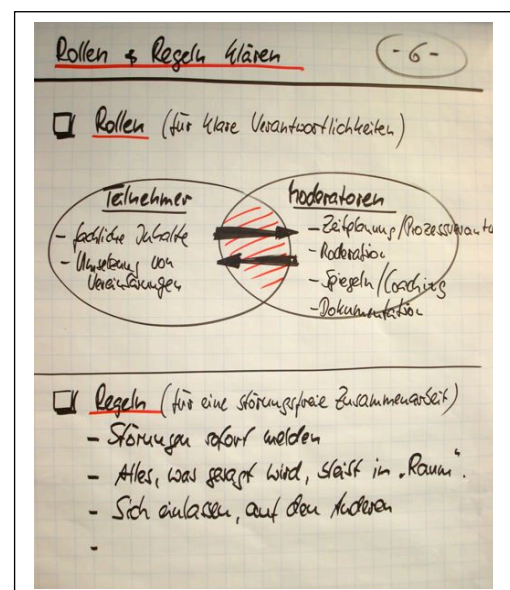 Rollen & Regeln klären
- 6 -
Rollen (für klare Verantwortlichkeiten)
Teilnehmer
- fachliche Inhalte
- Umsetzung von
Vereinbarungen
Moderatoren
- Zeitplanung/Prozessverantw
- Moderation
- Spiegeln/Coaching
- Dokumentation
Regeln (für eine störungsfreie Zusammenarbeit)
- Störungen sofort melden
- Alles, was gesagt wird, bleibt im „Raum“.
- Sich einlassen, auf den Anderen
-